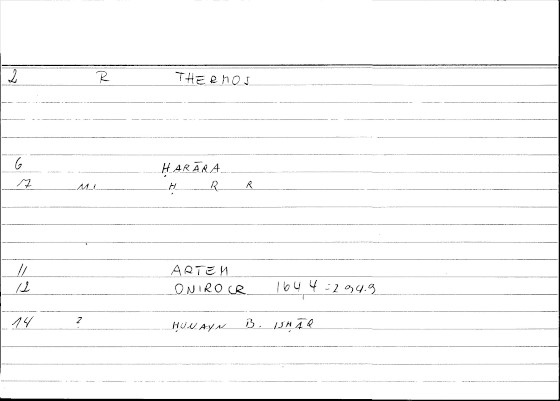 2 R THERMOS
6 ḤARĀRA
17 M1 Ḥ R R
11 ARTEM
12 ONIROCR 164,4 = 294.9
14 ? ḤUNAYN B. ISḤĀQ